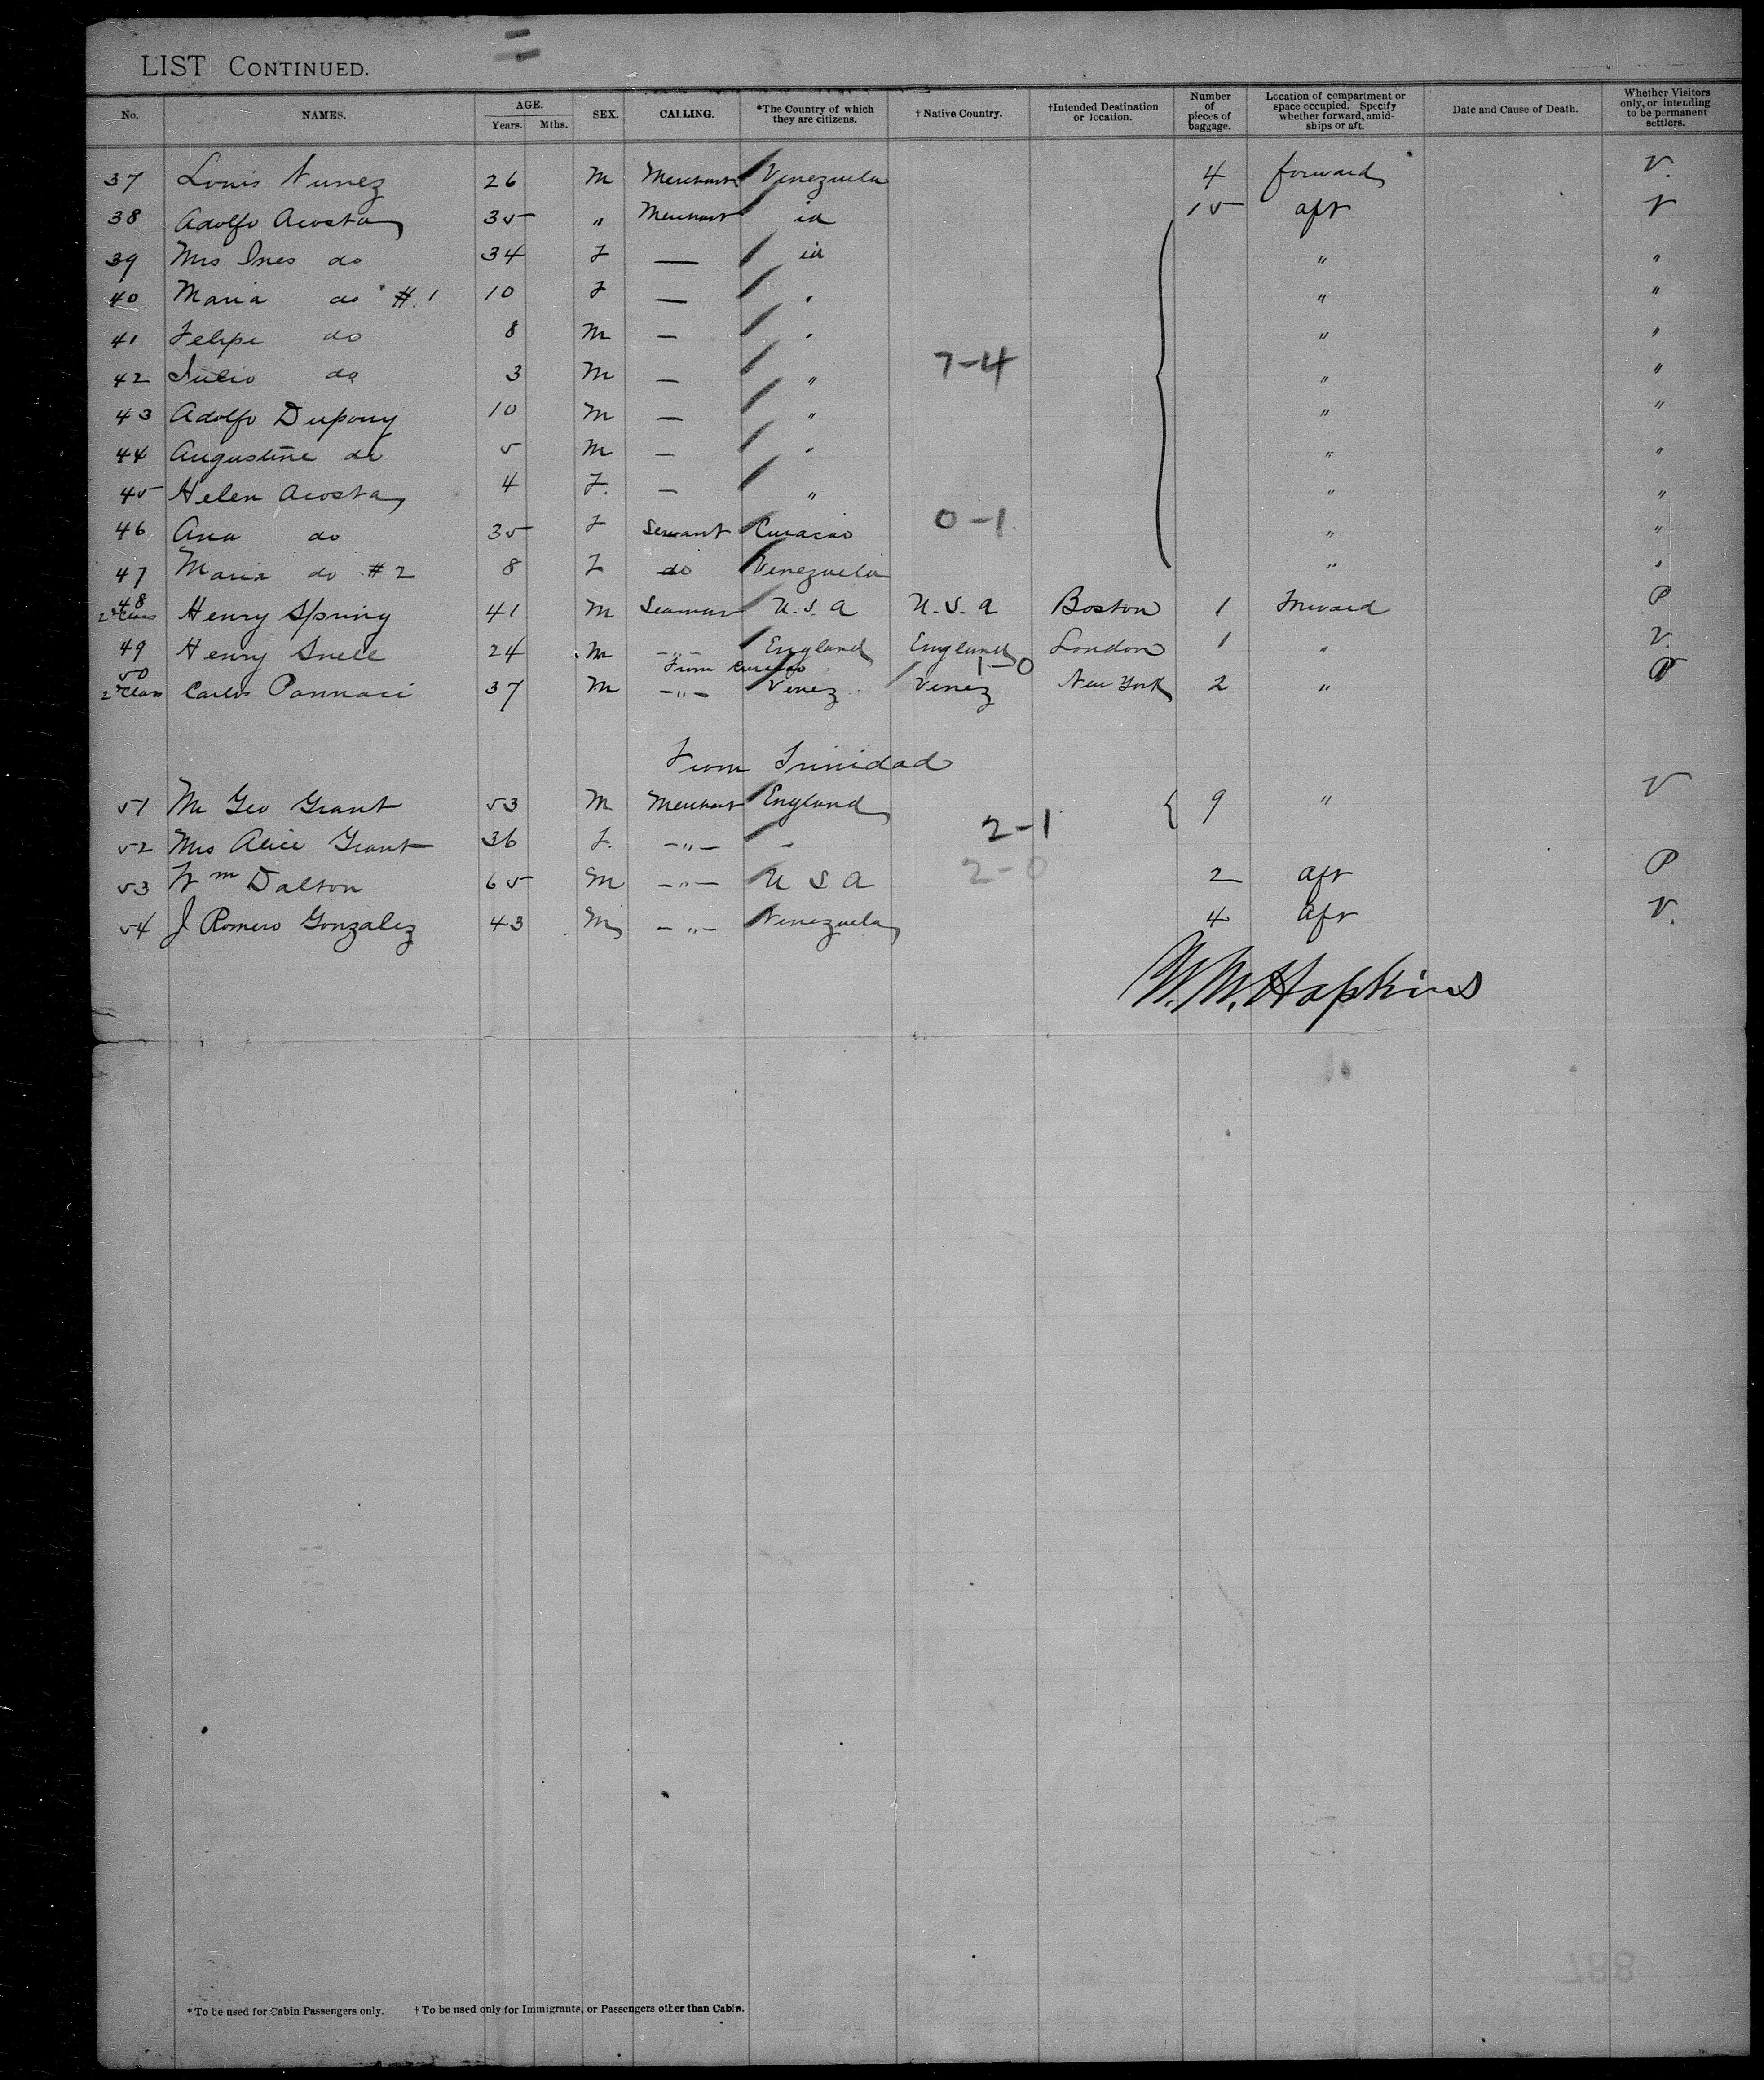 LIST CONTINUED.
No. NAMES. AGE. Years. Mths. SEX. CALLING. *The Country of which they are citizens. † Native Country. †Intended Destination or location. Number of pieces of baggage. Location of compartment or space occupied. Specify whether forward, amidships or aft. Date and Cause of Death. Whether Visitors only, or intending to be permanent settlers.
37 Louis Nunez 26 M Merchant Venezuela 4 forward V.
38 Adolfo Acosta 35 " Merchant id 15 aft V
39 Mrs Ines do 34 F — id " "
40 Maria do #1 10 F — " " "
41 Felipe do 8 M — " " "
42 Julio do 3 M — " 7-4 " "
43 Adolfo Dupouy 10 M — " " "
44 Augustine do 5 M — " " "
45 Helen Acosta 4 F. — " " "
46 Ana do 35 F Servant Curacao 0-1 " "
47 Maria do #2 8 F do Venezuela " "
48 2d Class Henry Spring 41 M Seaman U.S.A U.S.A Boston 1 Forward P
49 Henry Snell 24 M -"- England England London 1 " V.
From Curacao 1-0
50 2d Class Carlos Pannaci 37 M -"- Venez Venez New York 2 " P
From Trinidad
51 Mr Geo Grant 53 M Merchant England { 9 " V
52 Mrs Alice Grant 36 F. -"- - 2-1
53 Wm Dalton 65 M -"- U S A 2-0 2 aft P
54 J Romero Gonzalez 43 M -"- Venezuela 4 Aft V.
W. M. Hopkins
*To be used for Cabin Passengers only. †To be used only for Immigrants, or Passengers other than Cabin.